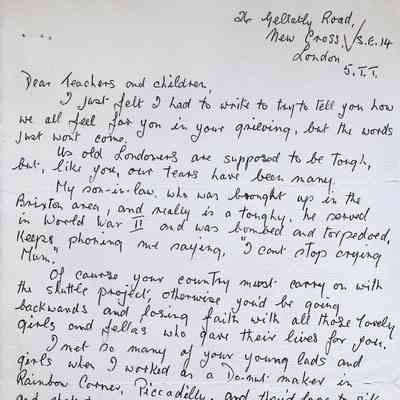 Gellatly Road,
New Cross S.E.14
London
Dear Teachers and children,
I just felt I had to write to try to tell you how
we all feel for you in your grieving, but the words
just wont come.
Us old Londoners are supposed to be tough,
but, like you, our tears have been many.
My son-in-law, who was brought up in the
Brixton area, and really is a toughy, he served
in World War II and was bombed and torpedoed,
Keeps phoning me saying, "I cant stop crying
Mum."
Of course your country must carry on with
the shuttle project, otherwise you'd be going
backwards and losing faith with all those lovely
girls and fellas who gave their lives for you.
I met so many of your young lads and
girls when I worked as a Do-nut maker in
Rainbow Corner, Piccadilly, and